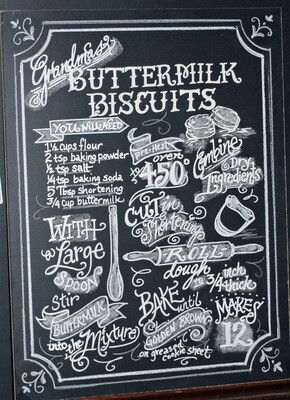 Grandma's
BUTTERMILK
BISCUITS
YOU WILL NEED
1½ cups flour
2 tsp baking powder
½ tsp salt
¼ tsp baking soda
5 Tbsp shortening
3/4 cup buttermilk
Pre-Heat
oven
to 450°
Combine
Dry
Ingredients
Cut in
Shortening
ROLL
dough to 3/4 inch
thick
WITH
a Large
SPOON
Stir
BUTTERMILK
into the Mixture
BAKE until
GOLDEN BROWN
on greased
cookie sheet.
MAKES
12